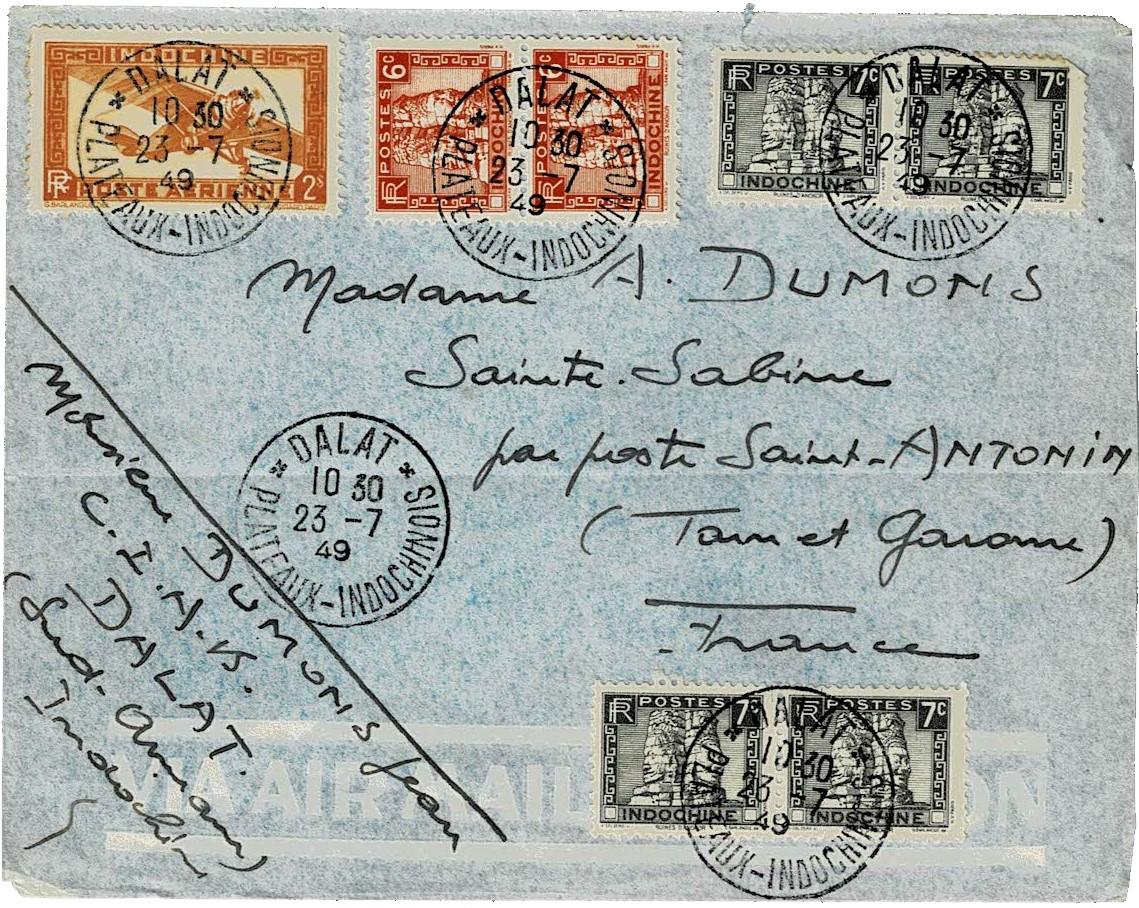 INDOCHINE
RF POSTE AERIENNE 2$
POSTES 6c
RF INDOCHINE
POSTES 6c
RF INDOCHINE
RF POSTES 7c
INDOCHINE
RF POSTES 7c
INDOCHINE
* DALAT *
10 30
23 -7
49
PLATEAUX-INDOCHINOIS
* DALAT *
10 30
23 -7
49
PLATEAUX-INDOCHINOIS
* DALAT *
10 30
23 -7
49
PLATEAUX-INDOCHINOIS
Madame A. DUMONS
Sainte-Sabine
par poste Saint-ANTONIN
(Tarn et Garonne)
France
* DALAT *
10 30
23 -7
49
PLATEAUX-INDOCHINOIS
Monsieur DUMONS Jean
DALAT.
(Sud-Annam)
Indochine
RF POSTES 7c
INDOCHINE
RF POSTES 7c
INDOCHINE
* DALAT *
10 30
23 -7
49
PLATEAUX-INDOCHINOIS
VIA AIR MAIL